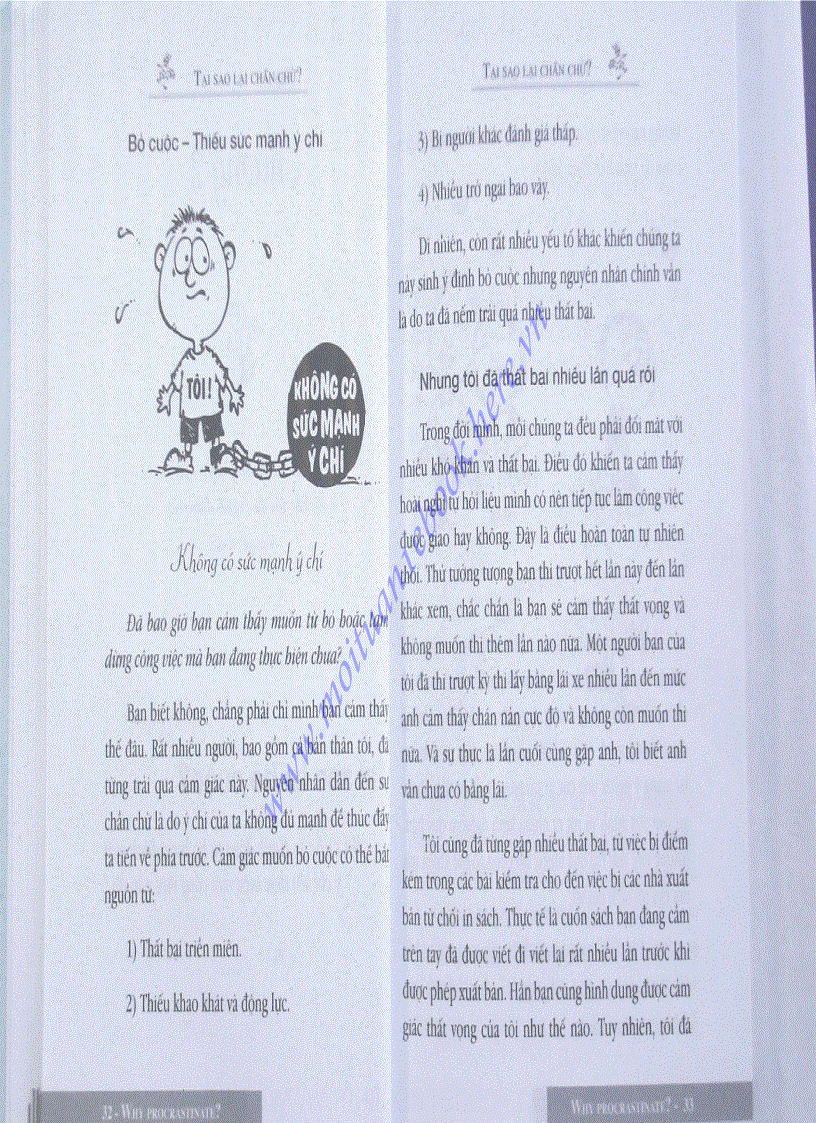 TẠI SAO LẠI CHẦN CHỪ?
Bỏ cuộc – Thiếu sức mạnh ý chí
TÔI!
KHÔNG CÓ
SỨC MẠNH
Ý CHÍ
Không có sức mạnh ý chí
Đã bao giờ bạn cảm thấy muốn từ bỏ hoặc tạm
dừng công việc mà bạn đang thực hiện chưa?
Bạn biết không, chẳng phải chỉ mình bạn cảm thấy
thế đâu. Rất nhiều người, bao gồm cả bản thân tôi, đã
từng trải qua cảm giác này. Nguyên nhân dẫn đến sự
chần chừ là do ý chí của ta không đủ mạnh để thúc đẩy
ta tiến về phía trước. Cảm giác muốn bỏ cuộc có thể bắt
nguồn từ:
1) Thất bại triền miên.
2) Thiếu khao khát và động lực.
32 - WHY PROCRASTINATE?
TẠI SAO LẠI CHẦN CHỪ?
3) Bị người khác đánh giá thấp.
4) Nhiều trở ngại bao vây.
Dĩ nhiên, còn rất nhiều yếu tố khác khiến chúng ta
nảy sinh ý định bỏ cuộc nhưng nguyên nhân chính vẫn
là do ta đã nếm trải quá nhiều thất bại.
Nhưng tôi đã thất bại nhiều lần quá rồi
Trong đời mình, mỗi chúng ta đều phải đối mặt với
nhiều khó khăn và thất bại. Điều đó khiến ta cảm thấy
hoài nghi tự hỏi liệu mình có nên tiếp tục làm công việc
được giao hay không. Đây là điều hoàn toàn tự nhiên
thôi. Thử tưởng tượng bạn thi trượt hết lần này đến lần
khác xem, chắc chắn là bạn sẽ cảm thấy thất vọng và
không muốn thi thêm lần nào nữa. Một người bạn của
tôi đã thi trượt kỳ thi lấy bằng lái xe nhiều lần đến mức
anh cảm thấy chán nản cực độ và không còn muốn thi
nữa. Và sự thực là lần cuối cùng gặp anh, tôi biết anh
vẫn chưa có bằng lái.
Tôi cũng đã từng gặp nhiều thất bại, từ việc bị điểm
kém trong các bài kiểm tra cho đến việc bị các nhà xuất
bản từ chối in sách. Thực tế là cuốn sách bạn đang cầm
trên tay đã được viết đi viết lại rất nhiều lần trước khi
được phép xuất bản. Hẳn bạn cũng hình dung được cảm
giác thất vọng của tôi như thế nào. Tuy nhiên, tôi đã
WHY PROCRASTINATE? - 33
www.moituanriebook.here.vn